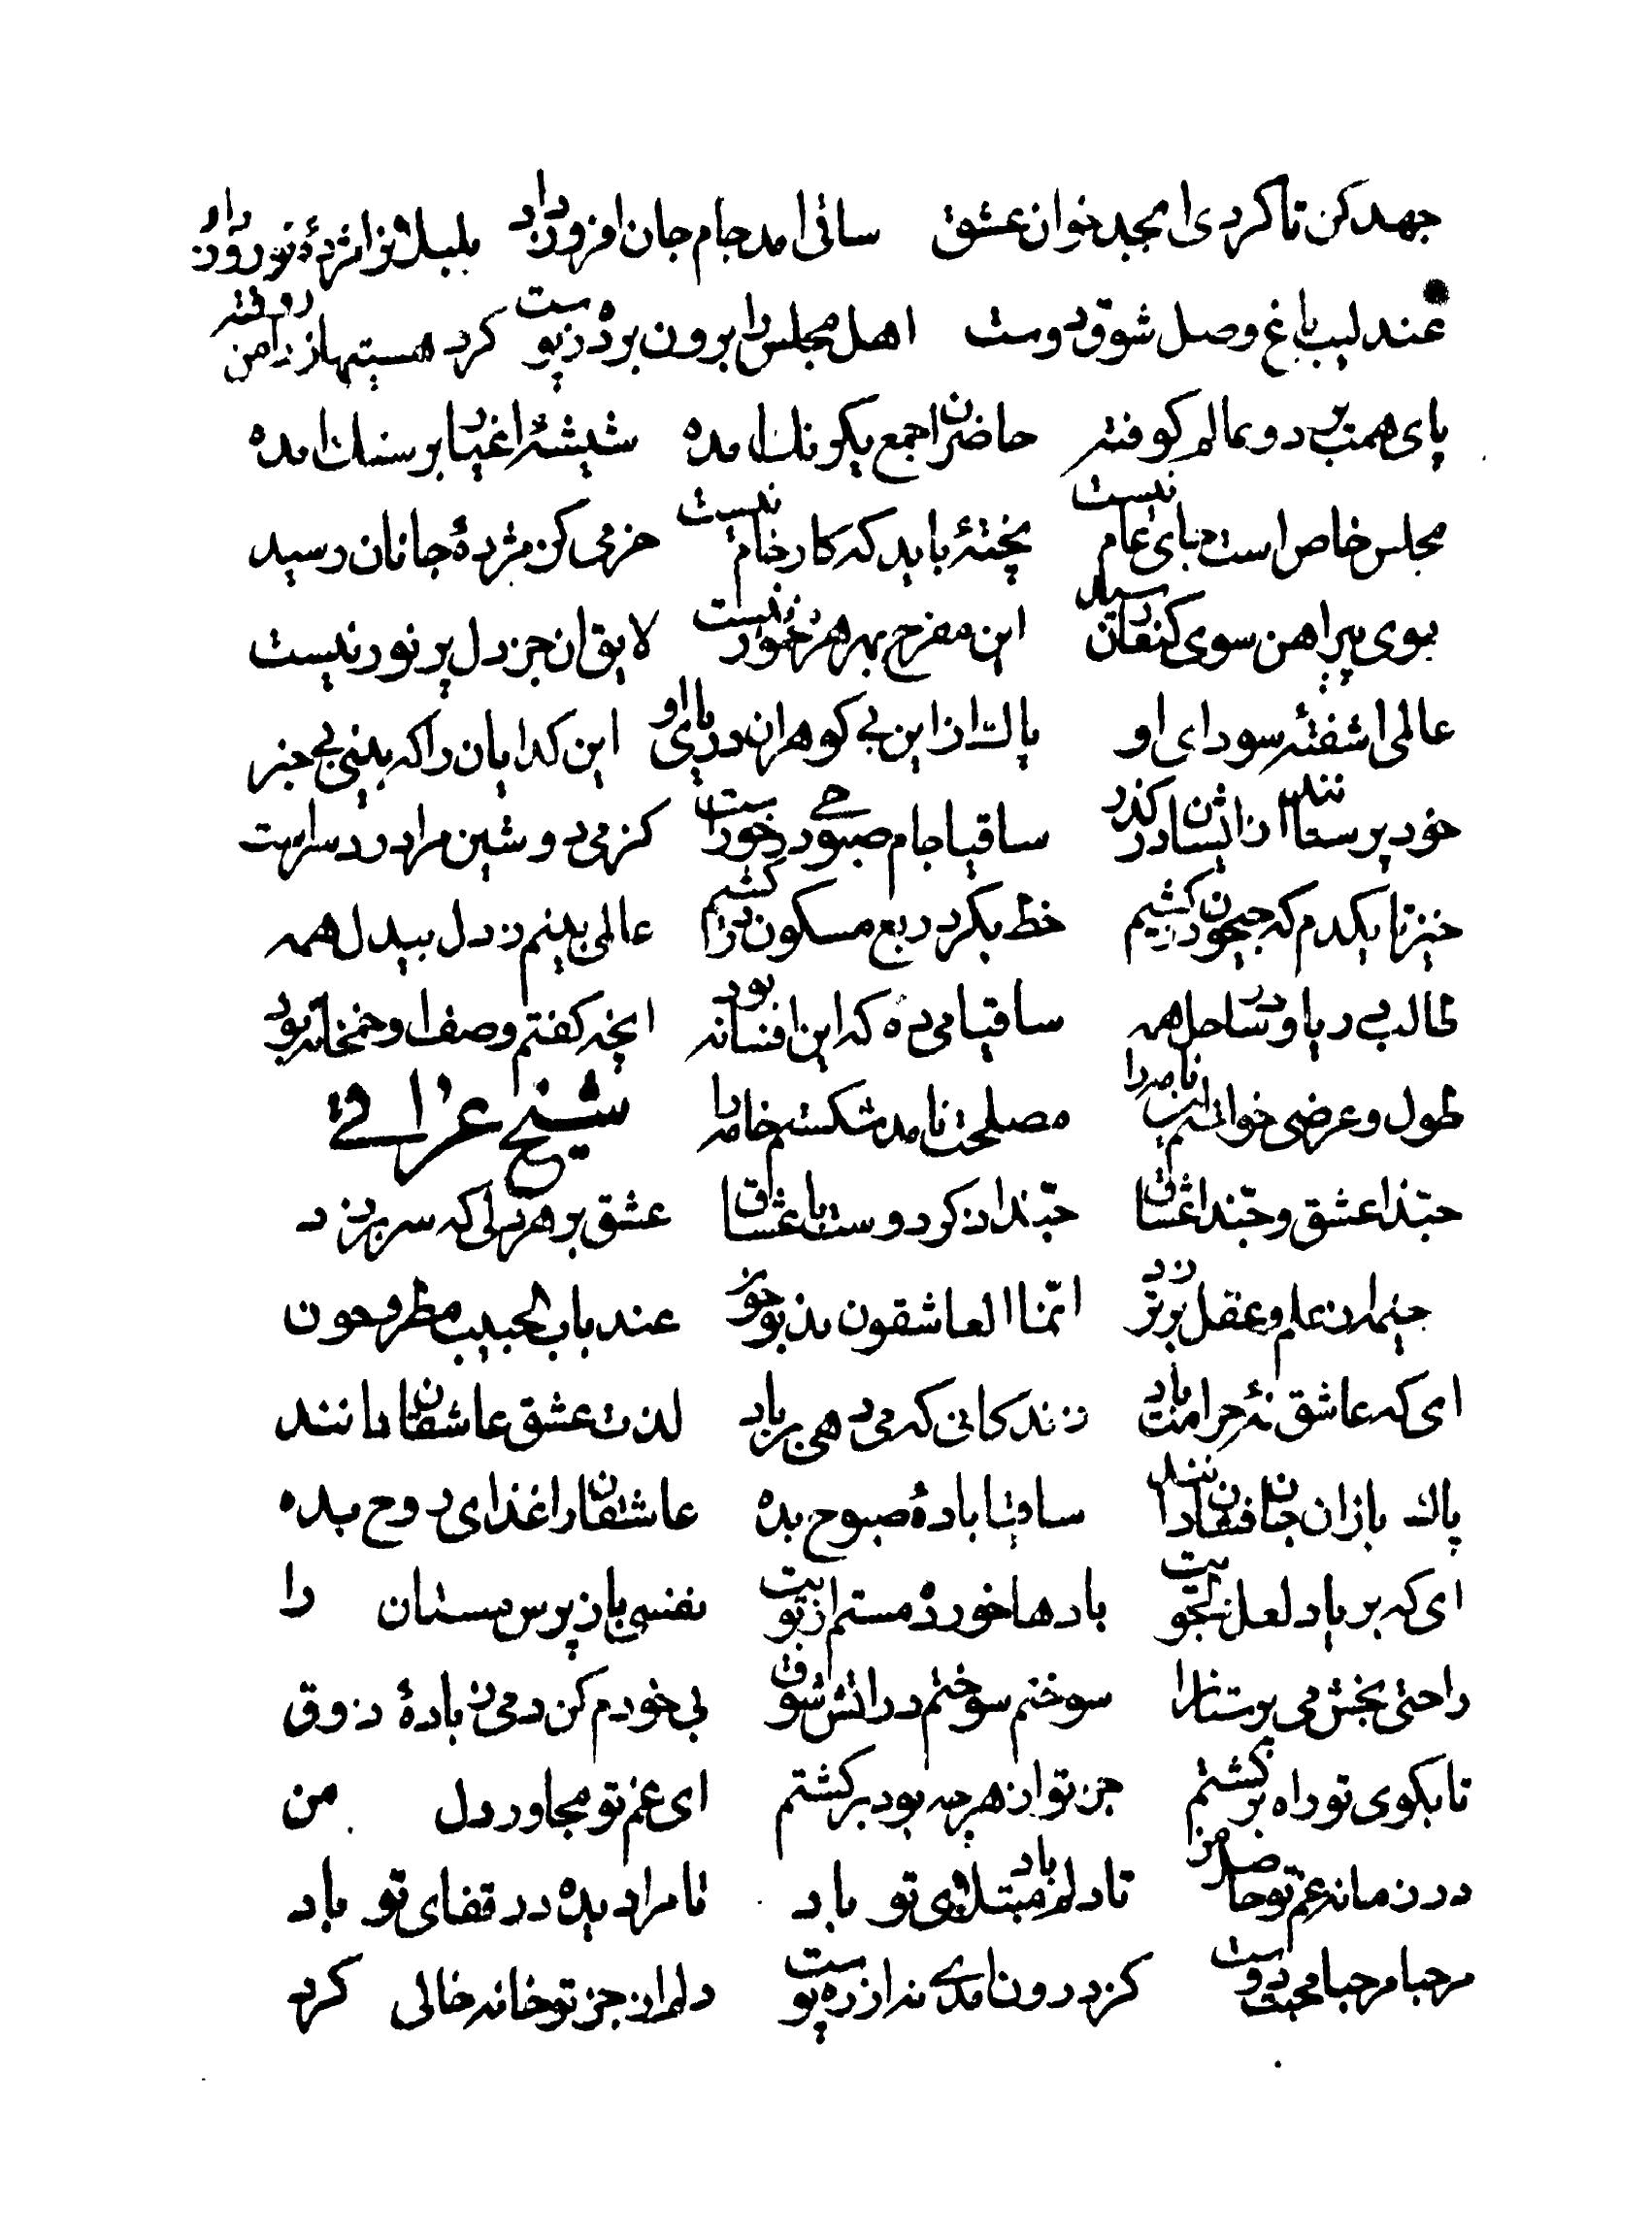 جهد کن تا کردی ابجد خوان عشق ساقی امد جام جان افروز داد بلبل انرا مژدهٔ نوروز داد
عندلیب باغ وصل شوق دوست اهل مجلس را برون برده ز پوست کرد هستیها ز دامن روفته
پای همت بر دو عالم کوفته حاضران را جمع یکرنک امده شیشهٔ اغیار بر سنک امده
مجلس خاص است جای عام نیست پختهٔ باید که کار خام نیست خرمی کن مژدهٔ جانان رسید
بوی پیراهن سوی کنعان رسید این مفرح بهر هر رنجور نیست لایق ان جز دل پر نور نیست
عالمی اشفتهٔ سودای او پاک از این بی کوهران دریای او این کدایان را که بینی بی خبر
خود پرستانند از ایشان در کذر ساقیا جام صبوحی در خور است کز می دوشین مرا درد سر است
خیز تا یکدم که جیحون در کشیم خط بکرد ربع مسکون در کشیم عالمی بینم ز دل بیدل همه
طالب دریا و در ساحل همه ساقیا می ده که این افسانه بود انچه کفتم وصف او خمخانه بود
طول و عرضی خواستم این نامه را مصلحت نامد شکستم خامه را شیخ عراقی
حبّذا عشق و حبّذا عشاق حبّذا ذکر دوست با عشاق عشق بر هر دلی که سر بر زد
خیمه از علم و عقل برتر زد انّما العاشقون مذبوحون عند باب الحبیب مطروحون
ای که عاشق نهٔ حرامت باد زندکانی که می دهی بر باد لذت عشق عاشقان دانند
پاک بازان جان فشان دانند ساقیا بادهٔ صبوح بده عاشقان را غذای روح بده
ای که بر یاد لعل دلجویت بادها خورده مستم از بویت نفسی باز پرس مستان را
راحتی بخش می پرستانرا سوختم سوختم در اتش شوق بی خودم کن دمی ز بادهٔ ذوق
تا بکوی تو راه بر کشتم جز تو از هر چه بود برکشتم ای غم تو مجاور دل من
در زمانه غم تو حاصل من تا دلم باد مبتلای تو باد نامرادیده در قفای تو باد
مرحبا مرحبا محبت دوست کز درون امدی نه از ره پوست دلم از جز تو خانه خالی کرد